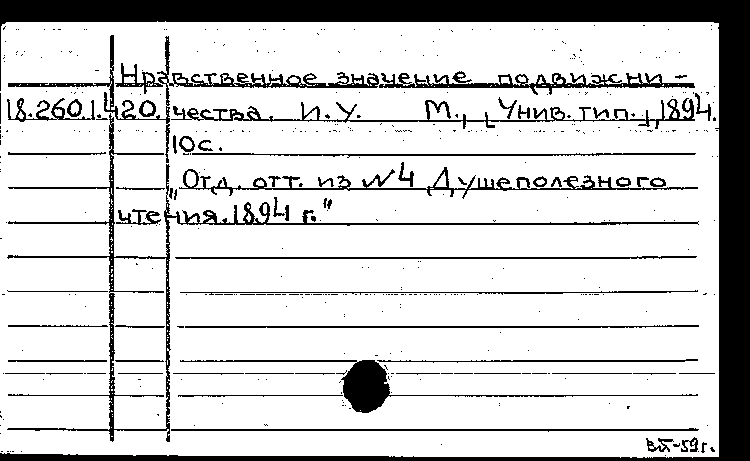 Нравственное значение подвижни-
18.260.1.420. чества. И.У. М., [Унив. тип.], 1894.
10с.
"Отд. отт. из №4 Душеполезного
чтения. 1894 г."